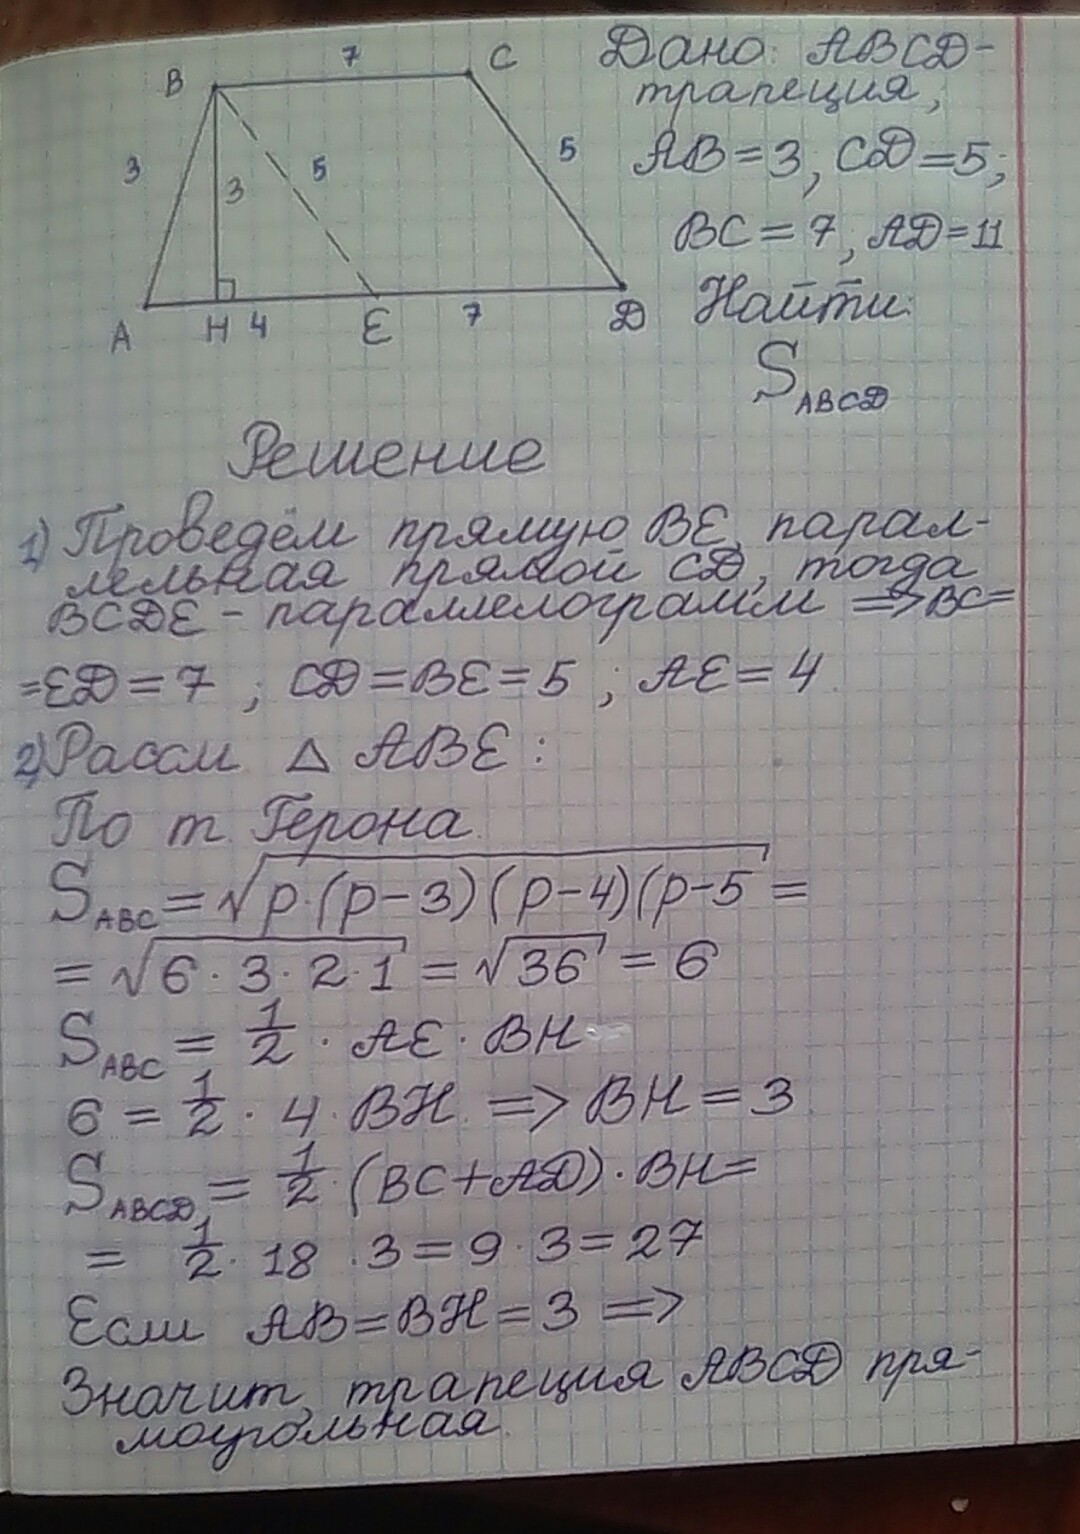 7
B
C
3
3
5
5
A
H
4
E
7
D
Дано: ABCD-
трапеция,
AB=3, CD=5;
BC=7, AD=11
Найти:
S ABCD
Решение
1) Проведём прямую BE, парал-
лельная прямой CD, тогда
BCDE - параллелограмм => BC=
=ED=7 ; CD=BE=5 ; AE=4
2) Рассм △ ABE:
По т. Герона
S ABC = √p·(p-3)(p-4)(p-5 =
= √6·3·2·1 = √36 = 6
S ABC = 1/2 · AE · BH
6 = 1/2 · 4 · BH => BH = 3
S ABCD = 1/2 · (BC+AD) · BH =
= 1/2 · 18 · 3 = 9 · 3 = 27
Если AB=BH=3 =>
Значит, трапеция ABCD пря-
моугольная.